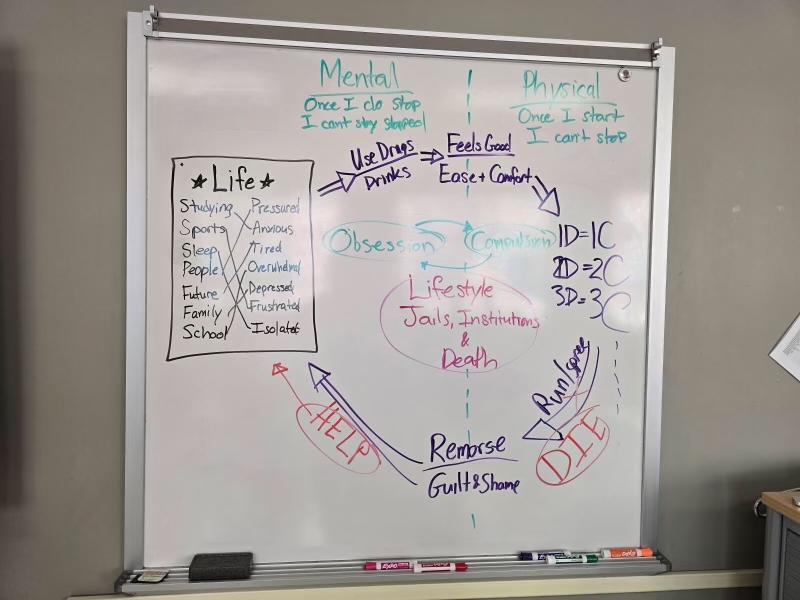 Mental
Once I do stop
I can't stay stopped
Physical
Once I start
I can't stop
Use Drugs
Drinks
Feels Good
Ease + Comfort
★ Life ★
Studying Pressured
Sports Anxious
Sleep Tired
People Overwhelmed
Future Depressed
Family Frustrated
School Isolated
Obsession
Compulsion
1D=1C
2D=2C
3D=3C
Lifestyle
Jails, Institutions
&
Death
Run/spree
DIE
HELP
Remorse
Guilt & Shame
EXPO